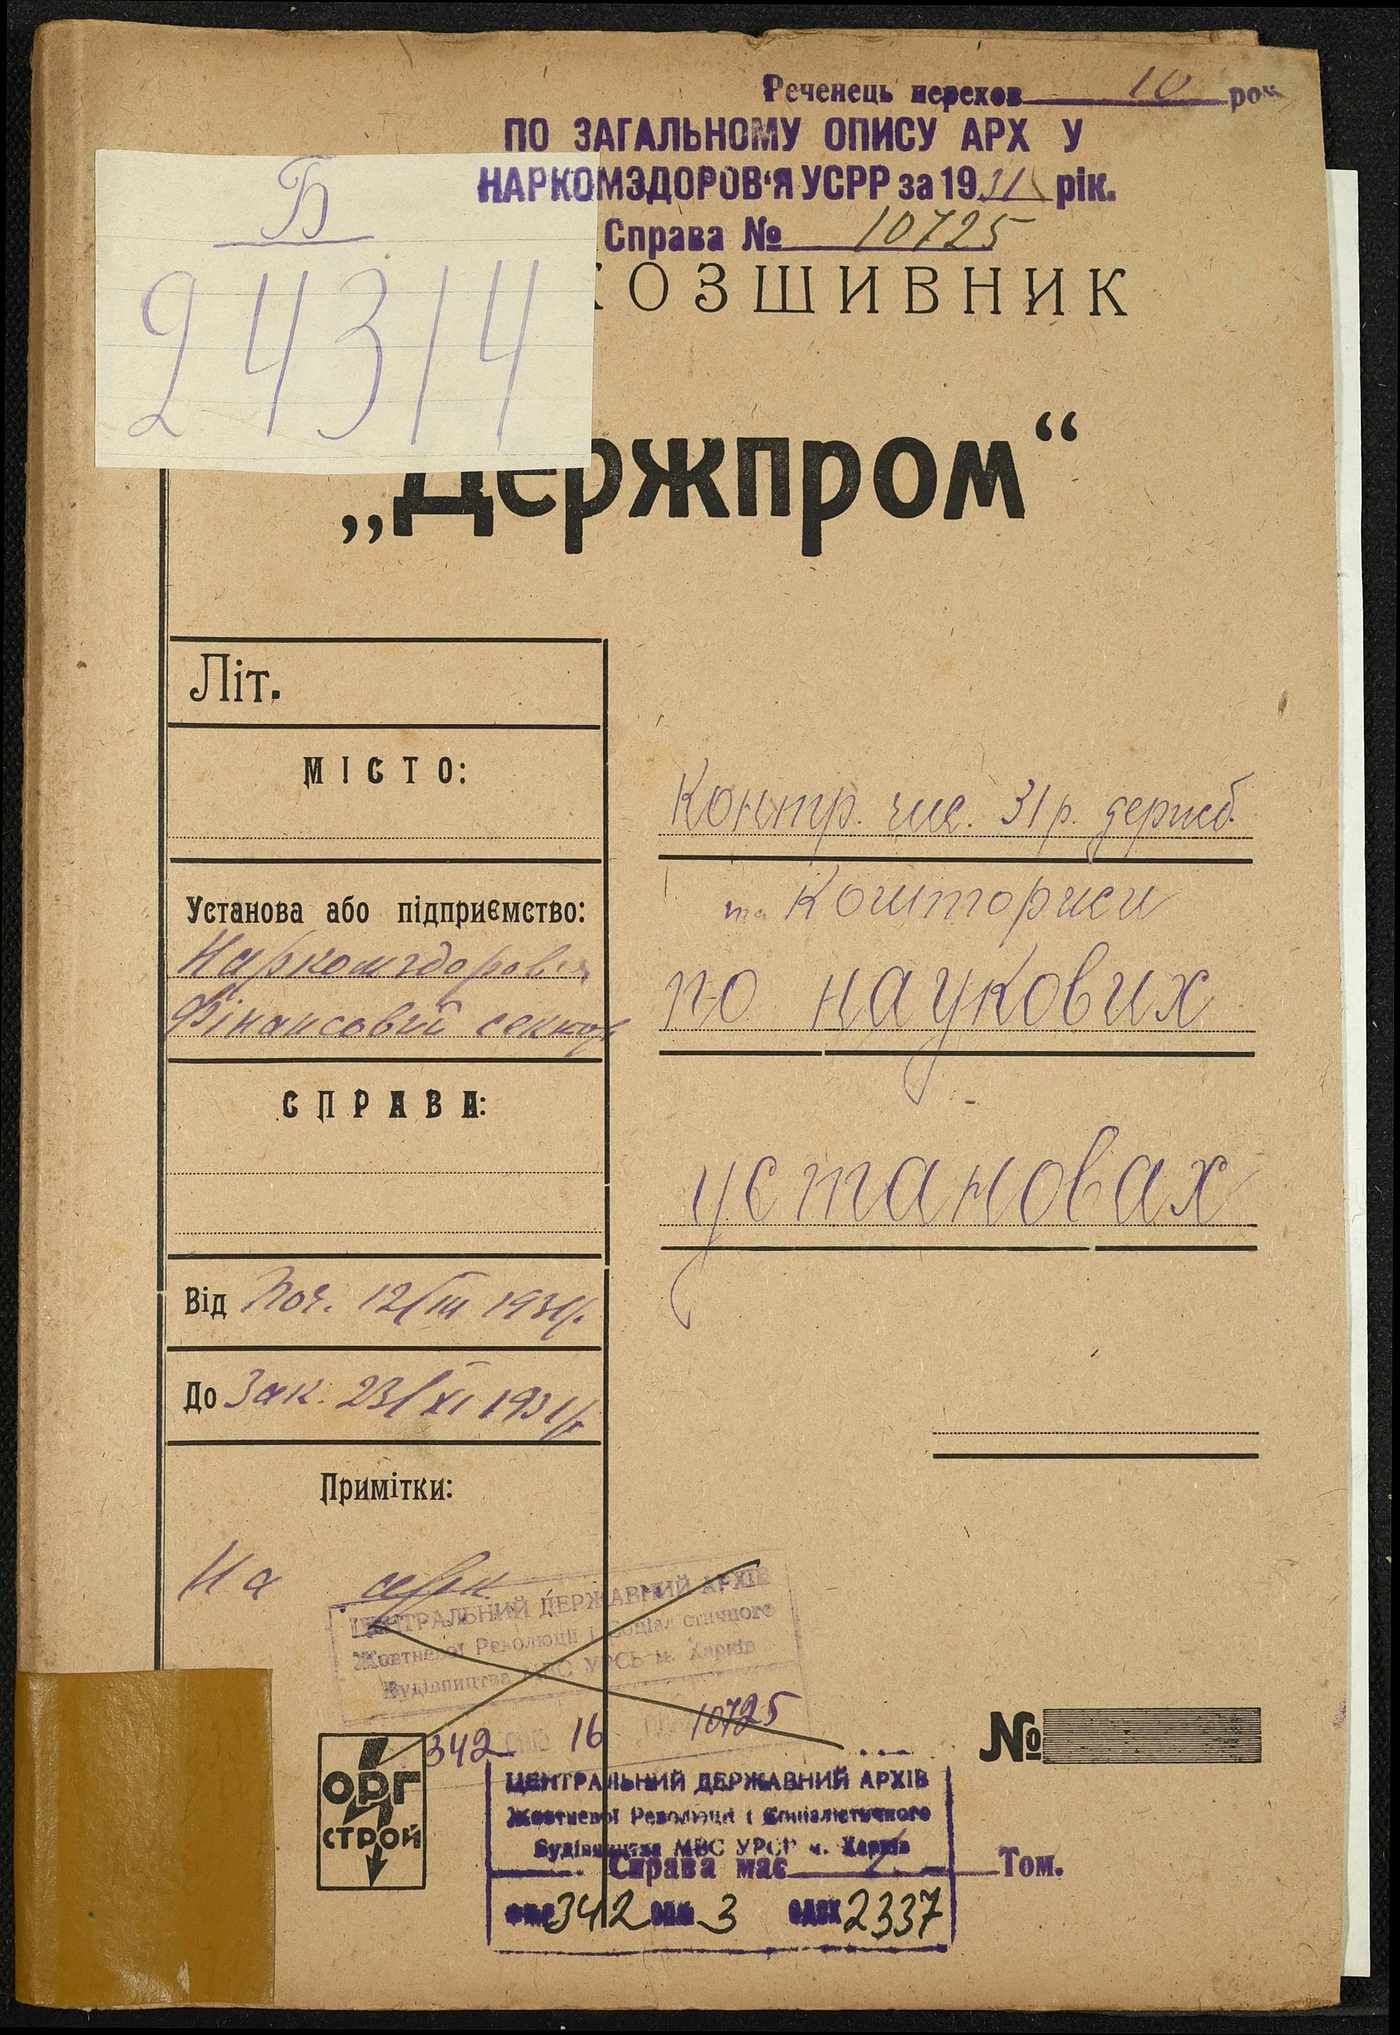 Реченець перехов 10 рок
ПО ЗАГАЛЬНОМУ ОПИСУ АРХ У
НАРКОМЗДОРОВ'Я УСРР за 1931 рік.
Справа № 10725
Б
24314
КОЗШИВНИК
„Держпром“
Літ.
МІСТО:
Установа або підприємство:
Наркомздоров'я
Фінансовий сектор
СПРАВА:
Від Поч. 12/III 1931 р.
До Зак. 23/XI 1931 р.
Примітки:
На
Контр. чис. 31 р. держб.
та Кошториси
по наукових
установах
ЦЕНТРАЛЬНИЙ ДЕРЖАВНИЙ АРХІВ
Жовтневої Революції і Соціалістичного
Будівництва МВС УРСР м. Харків
342 16 10725
ОРГ
СТРОЙ
№
ЦЕНТРАЛЬНИЙ ДЕРЖАВНИЙ АРХІВ
Жовтневої Революції і Соціалістичного
Будівництва МВС УРСР м. Харків
Справа має Том.
фонд 342 опис 3 од.зх 2337